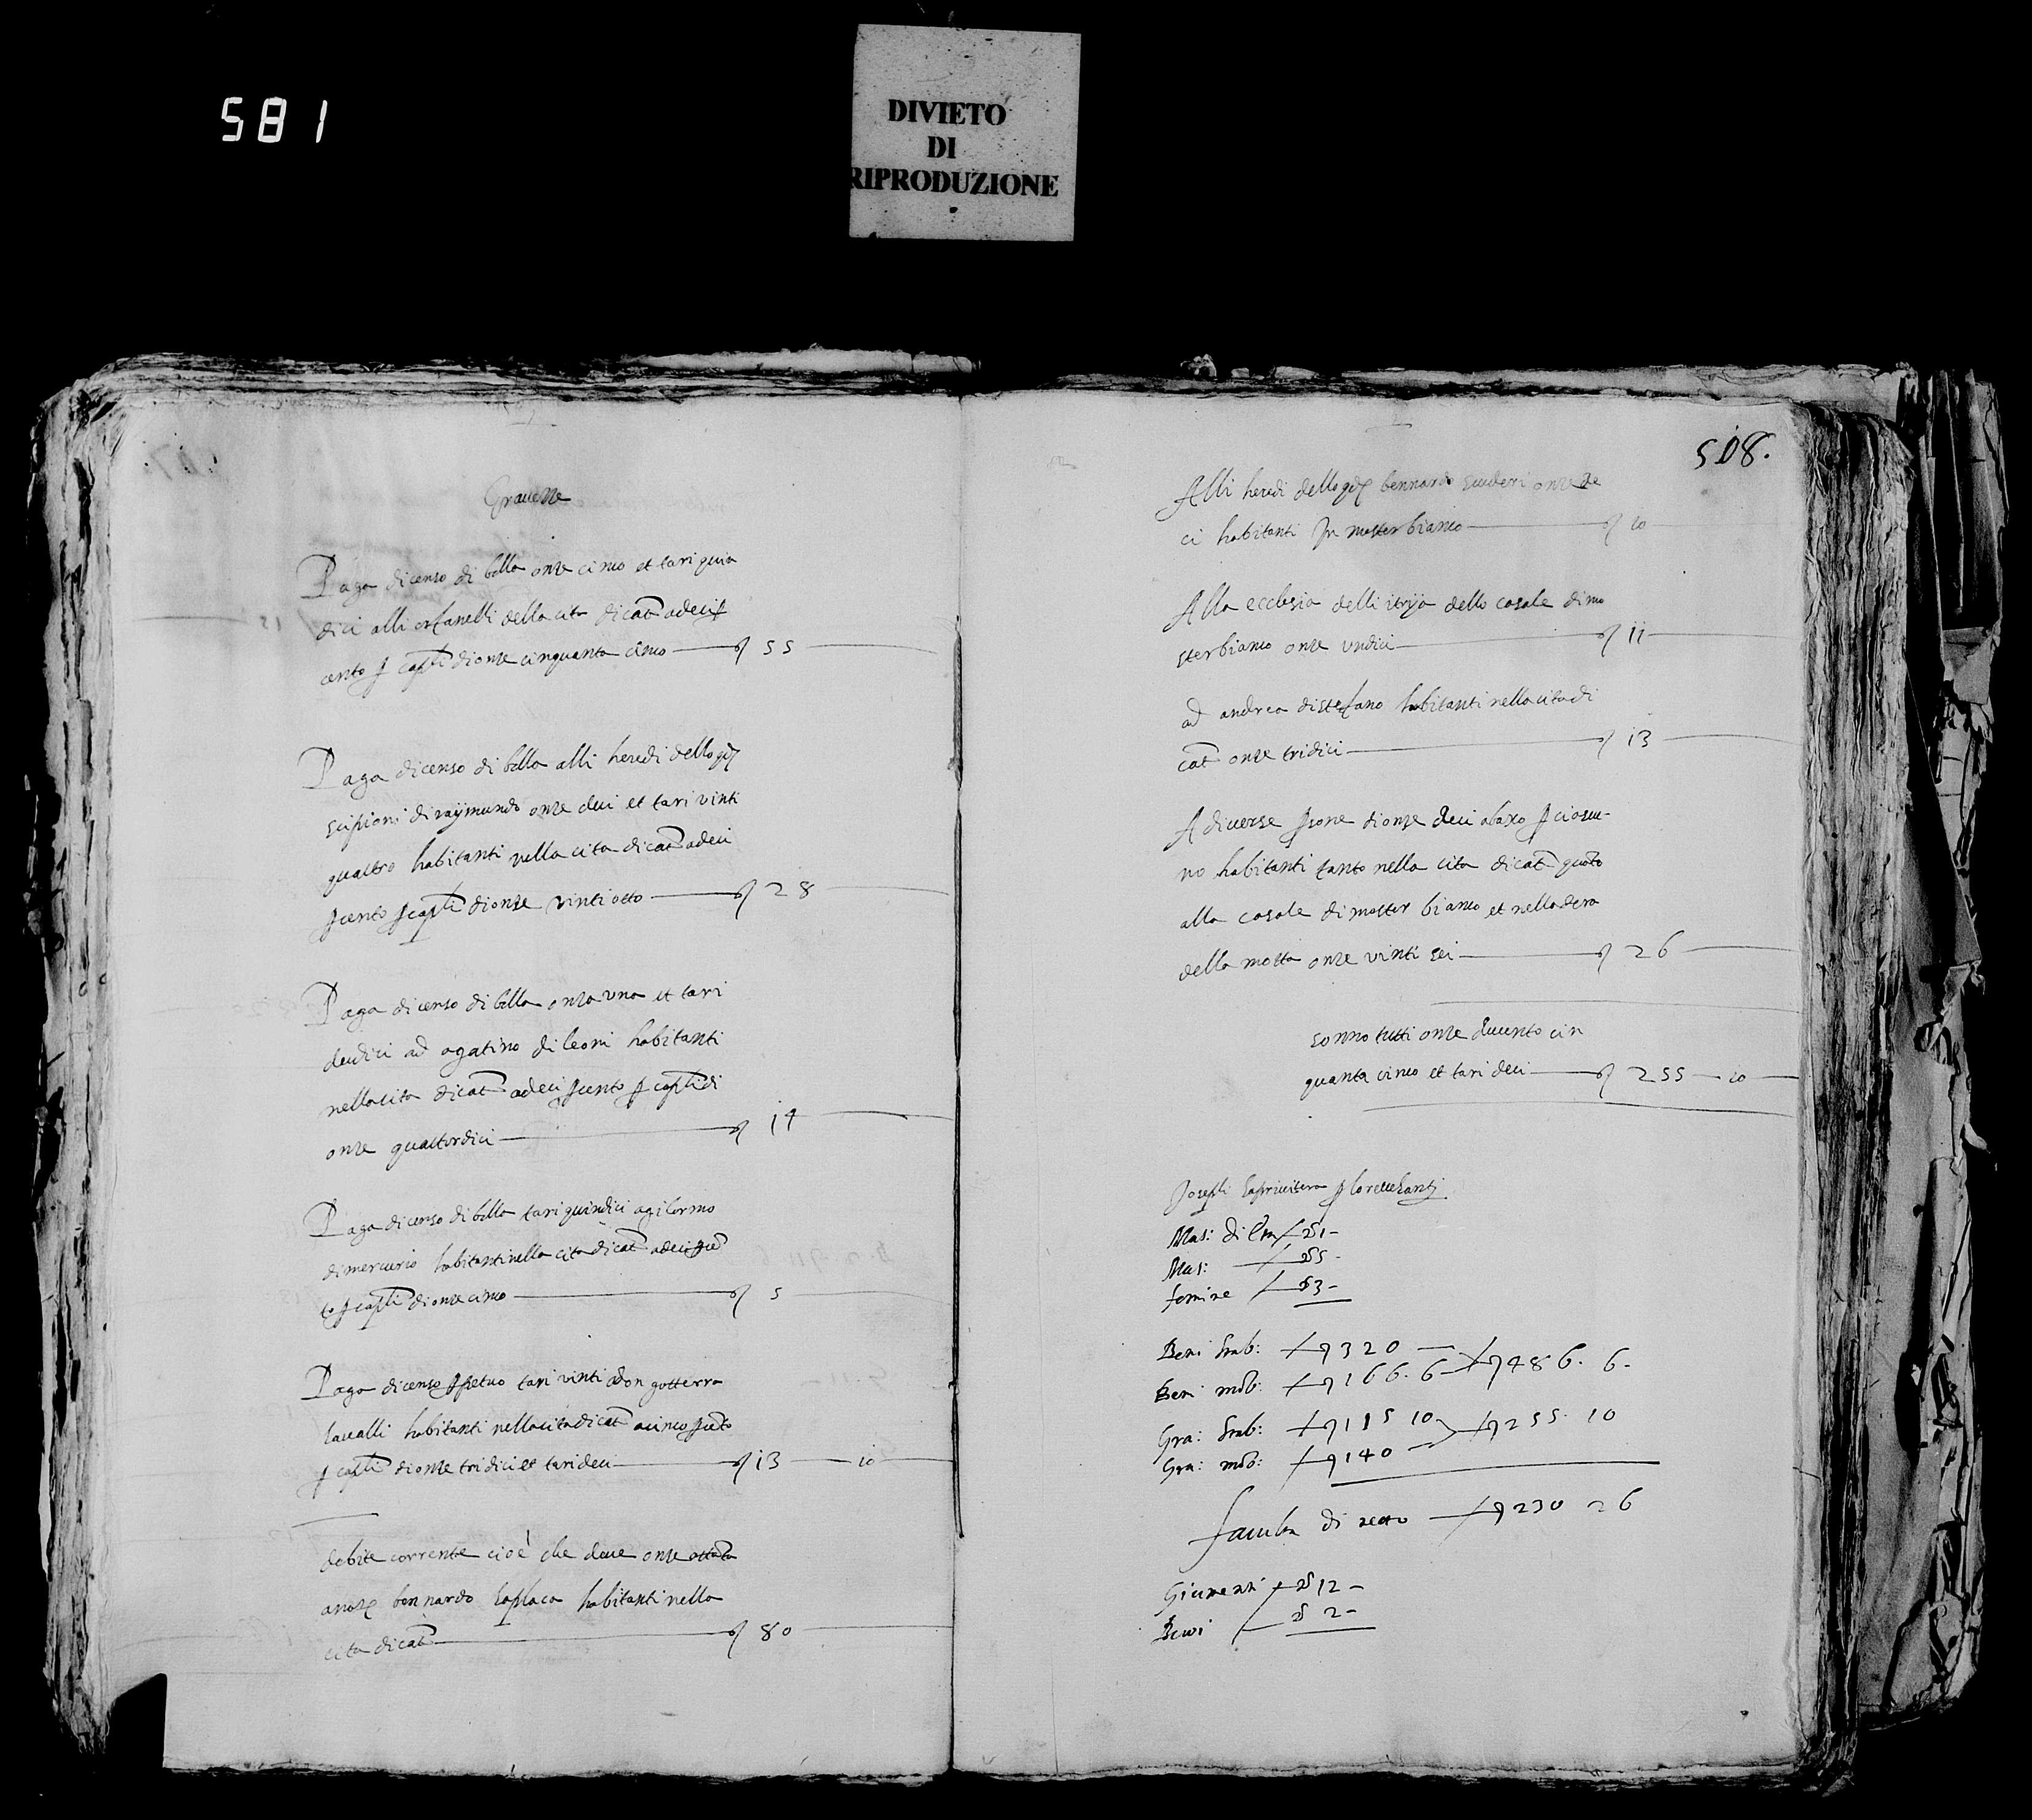 581
DIVIETO
DI
RIPRODUZIONE
Gravezze
Paga di censo di bolla onze cinco et tari quin
dici alli orfanelli della cita di cat.a a deci p
cento p cap.li di onze cinquanta cinco 55
Paga di censo di bolla alli heredi dello q.m
scipioni di raymundo onze deci et tari vinti
quattro habitanti nella cita di cat.a a deci
p cento p cap.li di onze vinti otto 28
Paga di censo di bolla onza una et tari
dudici ad agatino di leoni habitanti
nella cita di cat.a a deci p cento p cap.li di
onze quattordici 14
Paga di censo di bolla tari quindici a gilormo
di mercurio habitanti nella cita di cat.a a deci p cen
to p cap.li di onze cinco 5
Paga di censo p petuo tari vinti a don gutterra
habitanti nella cita di cat.a a cinco p cento
p cap.li di onze tridici et tari deci 13 10
debite corrente cioè che deve onze ottanta
a bennardo la placa habitanti nella
cita di cat.a 80
508.
Alli heredi dello q.m bennardo scuderi onze de
ci habitanti in muster bianco 10
Alla ecclesia delli itrija dello casale di mo
ster bianco onze undici 11
ad andrea di stefano habitanti nella cita di
cat.a onze tridici 13
A diverse p sone di onze deci a baxo p ciascu-
no habitanti tanto nella cita di cat.a quanto
alla casale di moster bianco et nella
della motta onze vinti sei 26
sonno tutti onze ducento cin
quanta cinco et tari deci 255 10
Joseph la privitera p
Mas: di 1
Mas: 5
femine 3
Beni stab: 320
Beni mob: 166. 6 486. 6
Gra: stab: 115 10 255. 10
Gra: mob: 140
faculta di netto 230 26
Giumenti 12
Bovi 2